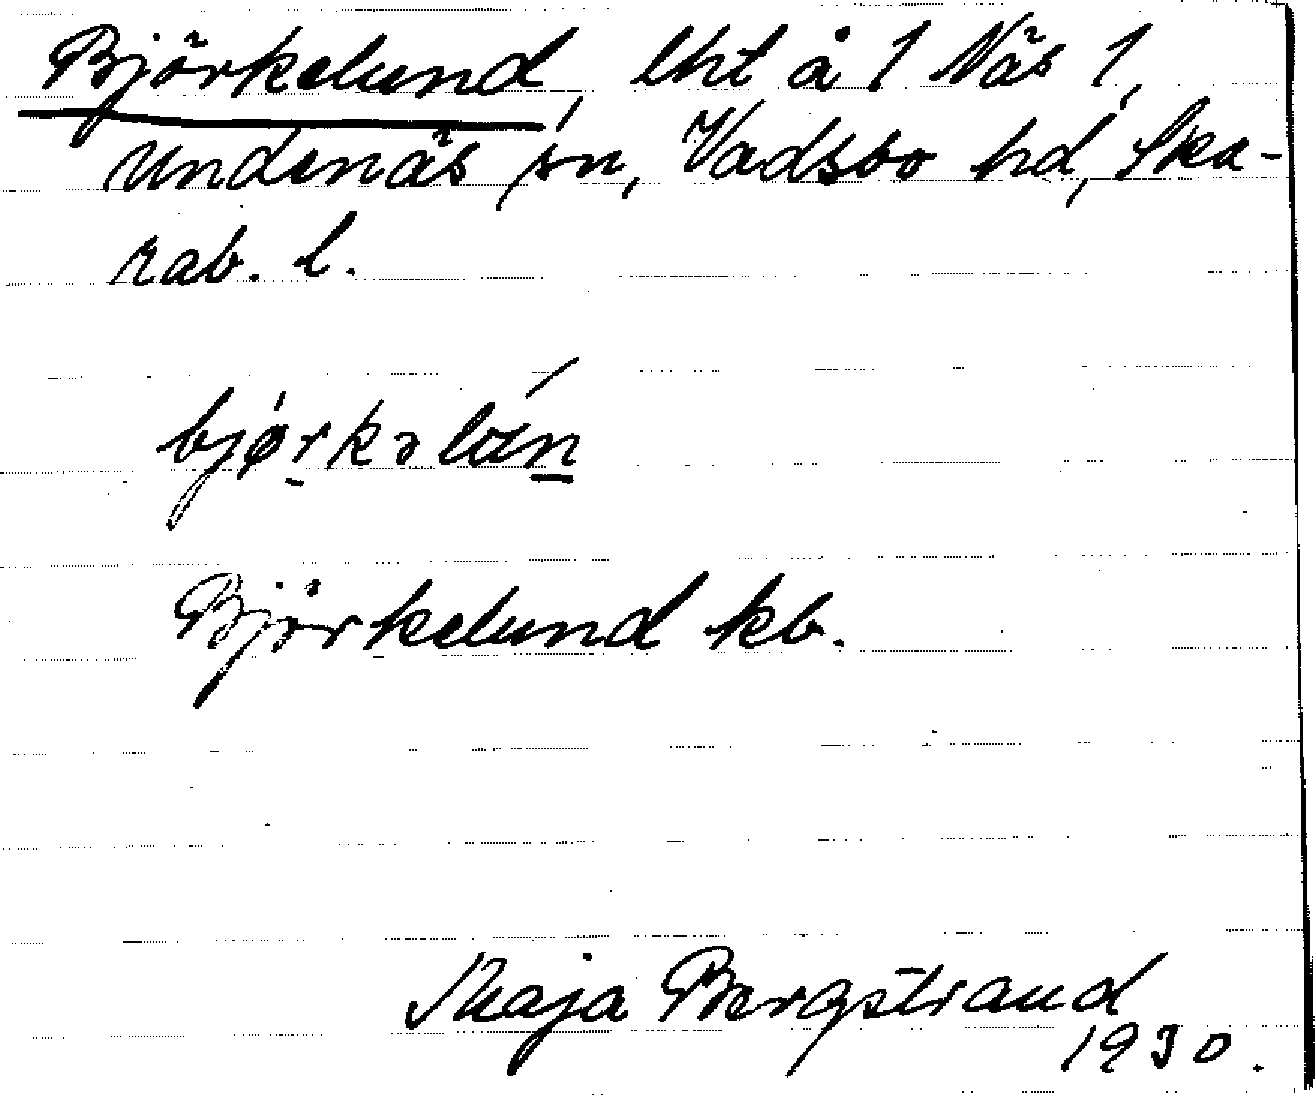 Björkelund, lht å 1 Näs 1,
Undenäs sn, Vadsbo hd, Ska-
rab. l.
Björkelund kb.
Maja Bergstrand
1930.